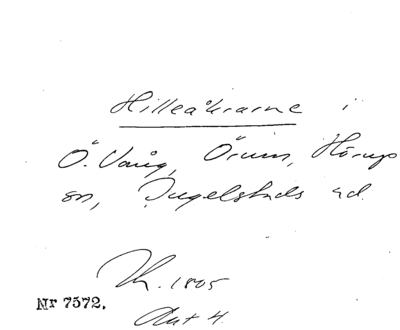 Hilleåkrarne i
Ö. Vång, Örum, Hörups
sn, Ingelstads hd.
Kh. 1805
Nr 7572.
Akt 4.